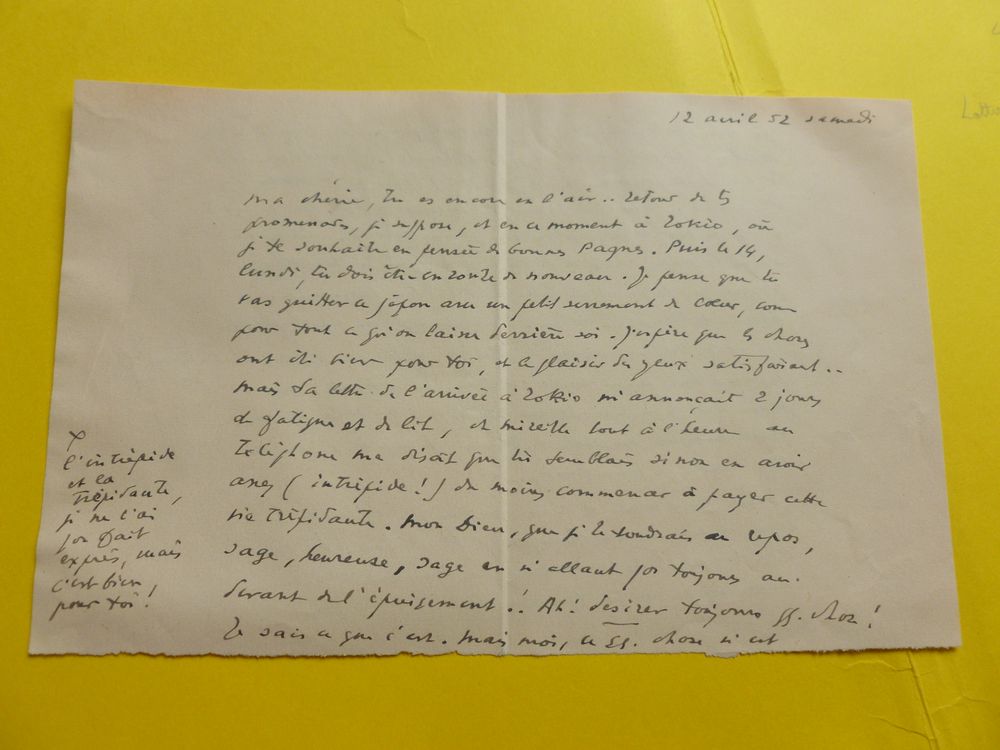 12 avril 52 samedi
ma chérie, tu es encore en l'air.. retour de tes
promenades, je suppose, et en ce moment à Tokio, où
je te souhaite en pensée de bonnes Paques. Puis le 14,
lundi, tu dois être en route de nouveau. Je pense que tu
vas quitter ce japon avec un petit serrement de coeur, comme
pour tout ce qu'on laisse derrière soi. J'espère que les choses
ont été bien pour toi, et le plaisir des yeux satisfaisant..
mais ta lettre de l'arrivée à Tokio m'annonçait 2 jours
de fatigue et de lit, et mireille tout à l'heure au
téléphone me disait que tu semblais sinon en avoir
assez (intrépide!) du moins commencer à payer cette
vie trépidante. mon Dieu, que je te voudrais au repos,
sage, heureuse, sage en n'allant pas toujours au-
devant de l'épuisement!! Ah! desirer toujours qq. chose!
Je sais ce que c'est. mais moi, ce qq. chose n'est
l'intrépide
et la
trépidante,
je ne l'ai
pas fait
exprès, mais
c'est bien
pour toi!